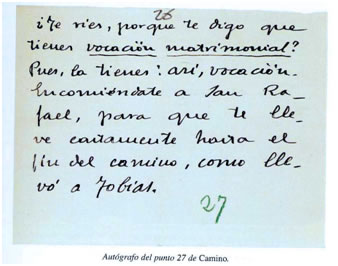 26
¿Te ries, porque te digo que
tienes vocación matrimonial?
Pues, la tienes: así, vocación.
Encomiéndate a San Ra-
fael, para que te lle-
ve castamente hasta el
fin del camino, como lle-
vó a Tobías.
27
Autógrafo del punto 27 de Camino.